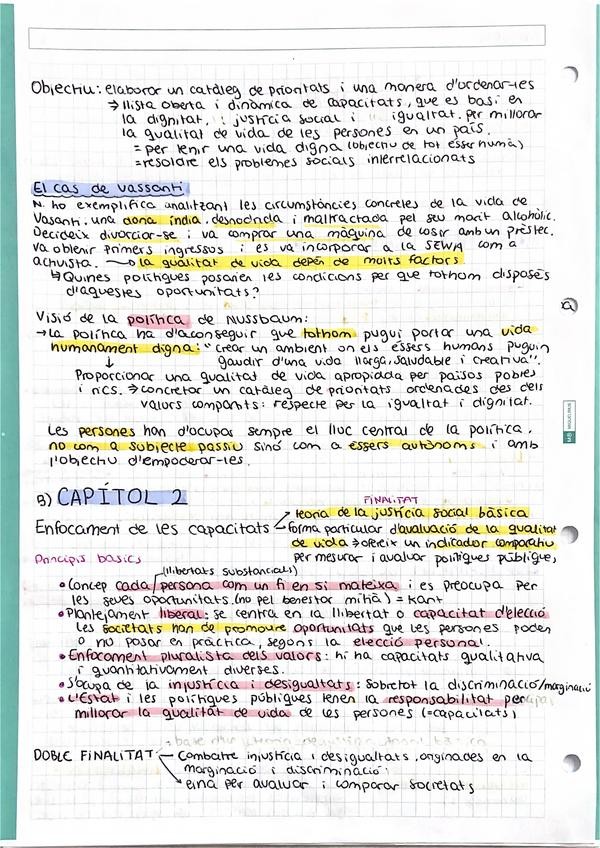 Objectiu: elaborar un catàleg de prioritats i una manera d'ordenar-les
→ llista oberta i dinàmica de capacitats, que es basi en
la dignitat, justícia social i igualtat. per millorar
la qualitat de vida de les persones en un país.
= per tenir una vida digna (objectiu de tot ésser humà)
= resoldre els problemes socials interrelacionats
El cas de Vassanti
N. ho exemplifica analitzant les circumstàncies concretes de la vida de
Vasanti, una dona índia, desnodrida i maltractada pel seu marit alcohòlic.
Decideix divorciar-se i va comprar una màquina de cosir amb un préstec.
Va obtenir primers ingressos i es va incorporar a la SEWA com a
activista. → la qualitat de vida depèn de molts factors
↳ Quines polítiques posarien les condicions per que tothom disposés
d'aquestes oportunitats?
Visió de la política de Nussbaum:
→ La política ha d'aconseguir que tothom pugui portar una vida
humanament digna: "crear un ambient on els éssers humans puguin
gaudir d'una vida llarga, saludable i creativa".
↓
Proporcionar una qualitat de vida apropiada per països pobres
i rics. → concretar un catàleg de prioritats ordenades des dels
valors compartits: respecte per la igualtat i dignitat.
Les persones han d'ocupar sempre el lloc central de la política,
no com a subjecte passiu sinó com a éssers autònoms i amb
l'objectiu d'empoderar-les.
B) CAPÍTOL 2
FINALITAT
Enfocament de les capacitats
teoria de la justícia social bàsica
forma particular d'avaluació de la qualitat
de vida → ofereix un indicador comparatiu
per mesurar i avaluar polítiques públiques,
Principis bàsics
(llibertats substancials)
• Concep cada persona com un fi en si mateixa i es preocupa per
les seves oportunitats. (no pel benestar mitjà) = Kant
• Plantejament liberal: se centra en la llibertat o capacitat d'elecció
Les societats han de promoure oportunitats que les persones poden
o no posar en pràctica, segons la elecció personal.
• Enfocament pluralista dels valors: hi ha capacitats qualitativa
i quantitativament diverses.
• S'ocupa de la injustícia i desigualtats: sobretot la discriminació/marginació
• L'Estat i les polítiques públiques tenen la responsabilitat per
millorar la qualitat de vida de les persones (=capacitats)
DOBLE FINALITAT
Combatre injustícia i desigualtats, originades en la
marginació i discriminació
eina per avaluar i comparar societats
MIQUELRIUS